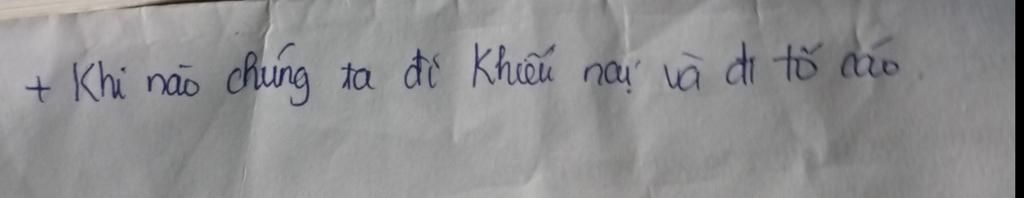 + Khi nào chúng ta đi Khiếu nại và đi tố cáo.